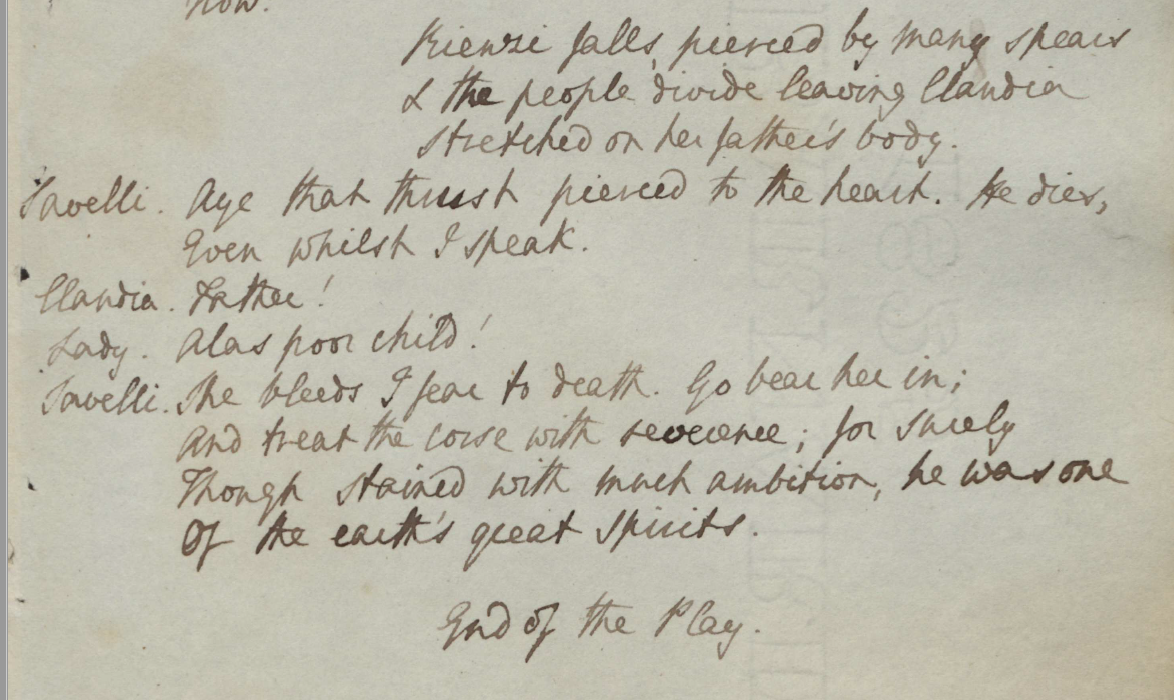 now.
Rienzi falls, pierced by many spears
& the people divide leaving Claudia
stretched on her father's body.
Savelli. Aye that thrust pierced to the heart. He dies,
Even whilst I speak.
Claudia. Father!
Lady. Alas poor child!
Savelli. She bleeds I fear to death. Go bear her in;
And treat the corse with reverence; for surely
Though stained with much ambition, he was one
Of the earth's great spirits.
End of the Play.